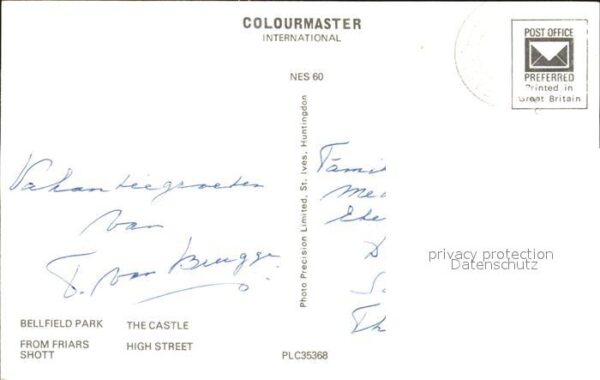 COLOURMASTER
INTERNATIONAL
NES 60
POST OFFICE
PREFERRED
Printed in
Great Britain
Vakantiegroeten
van
T. van Brugge
Photo Precision Limited, St. Ives, Huntingdon
privacy protection
Datenschutz
BELLFIELD PARK THE CASTLE
FROM FRIARS HIGH STREET
SHOTT
PLC35368